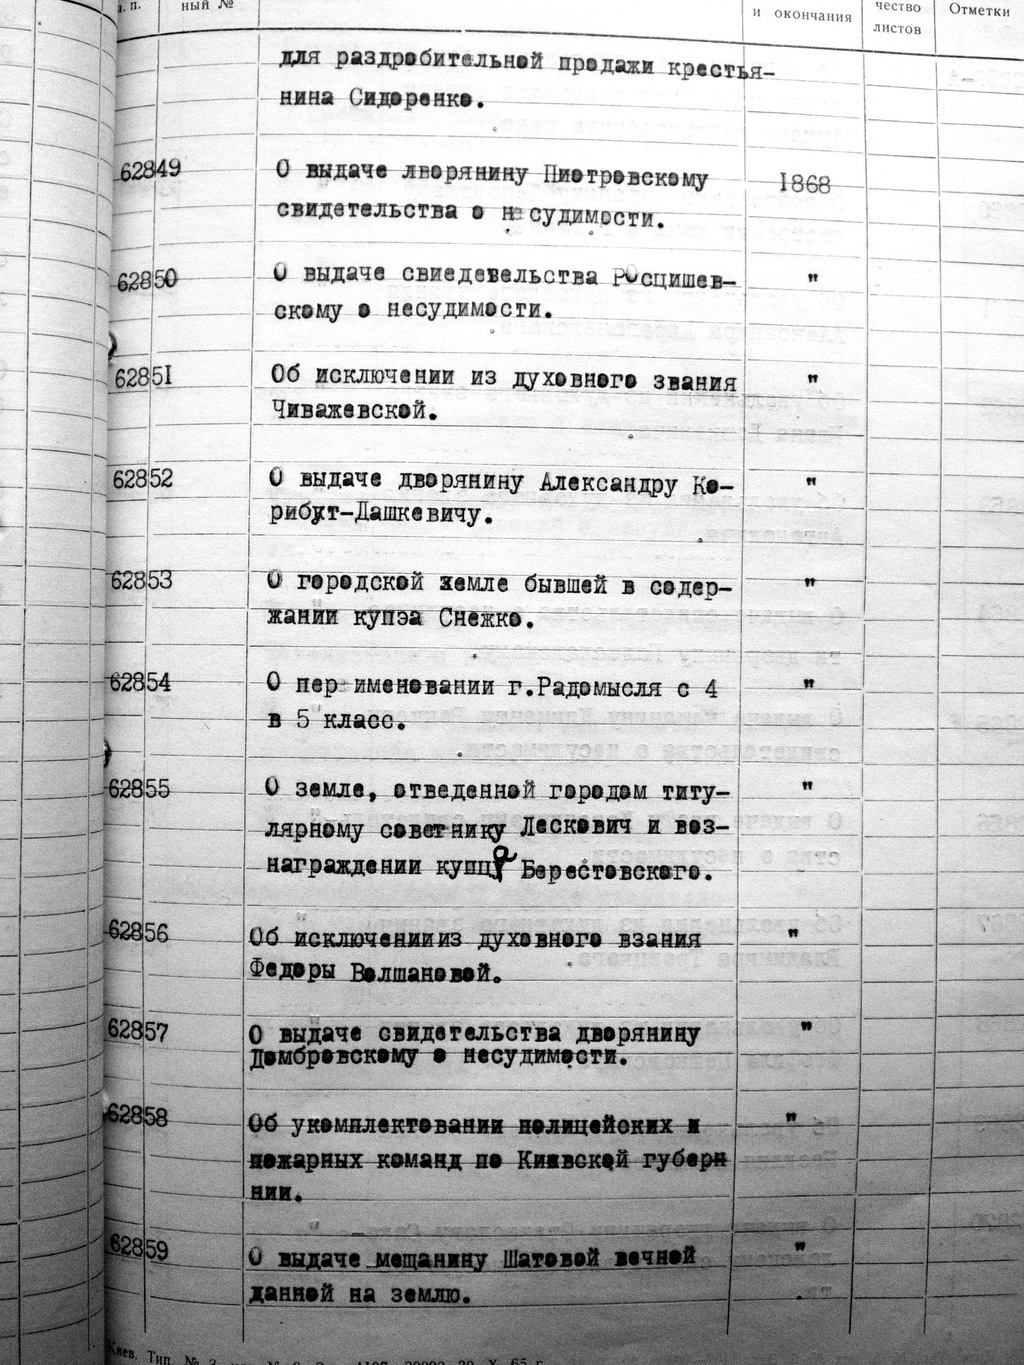 п. п.
ный №
и окончания
чество
листов
Отметки
для раздробительной продажи крестья-
нина Сидоренко.
62849 О выдаче лворянину Пиотровскому 1868
свидетельства о не судимости.
62850 О выдаче свиедевельства Росцишев- "
скому о несудимости.
62851 Об исключении из духовного звания "
Чиважевской.
62852 О выдаче дворянину Александру Ко- "
рибут-Дашкевичу.
62853 О городской земле бывшей в содер- "
жании купэа Снежко.
62854 О пер именовании г.Радомысля с 4 "
в 5 класс.
62855 О земле, отведенной городом титу- "
лярному советнику Лескович и воз-
награждении купца Берестовского.
62856 Об исключениииз духовного взания "
Федоры Волшановой.
62857 О выдаче свидетельства дворянину "
Домбровскому о несудимости.
62858 Об укомплектовании полицейских и "
пожарных команд по Киевской губерн
нии.
62859 О выдаче мещанину Шатовой вечной "
данной на землю.
Киев. Тип. № 3